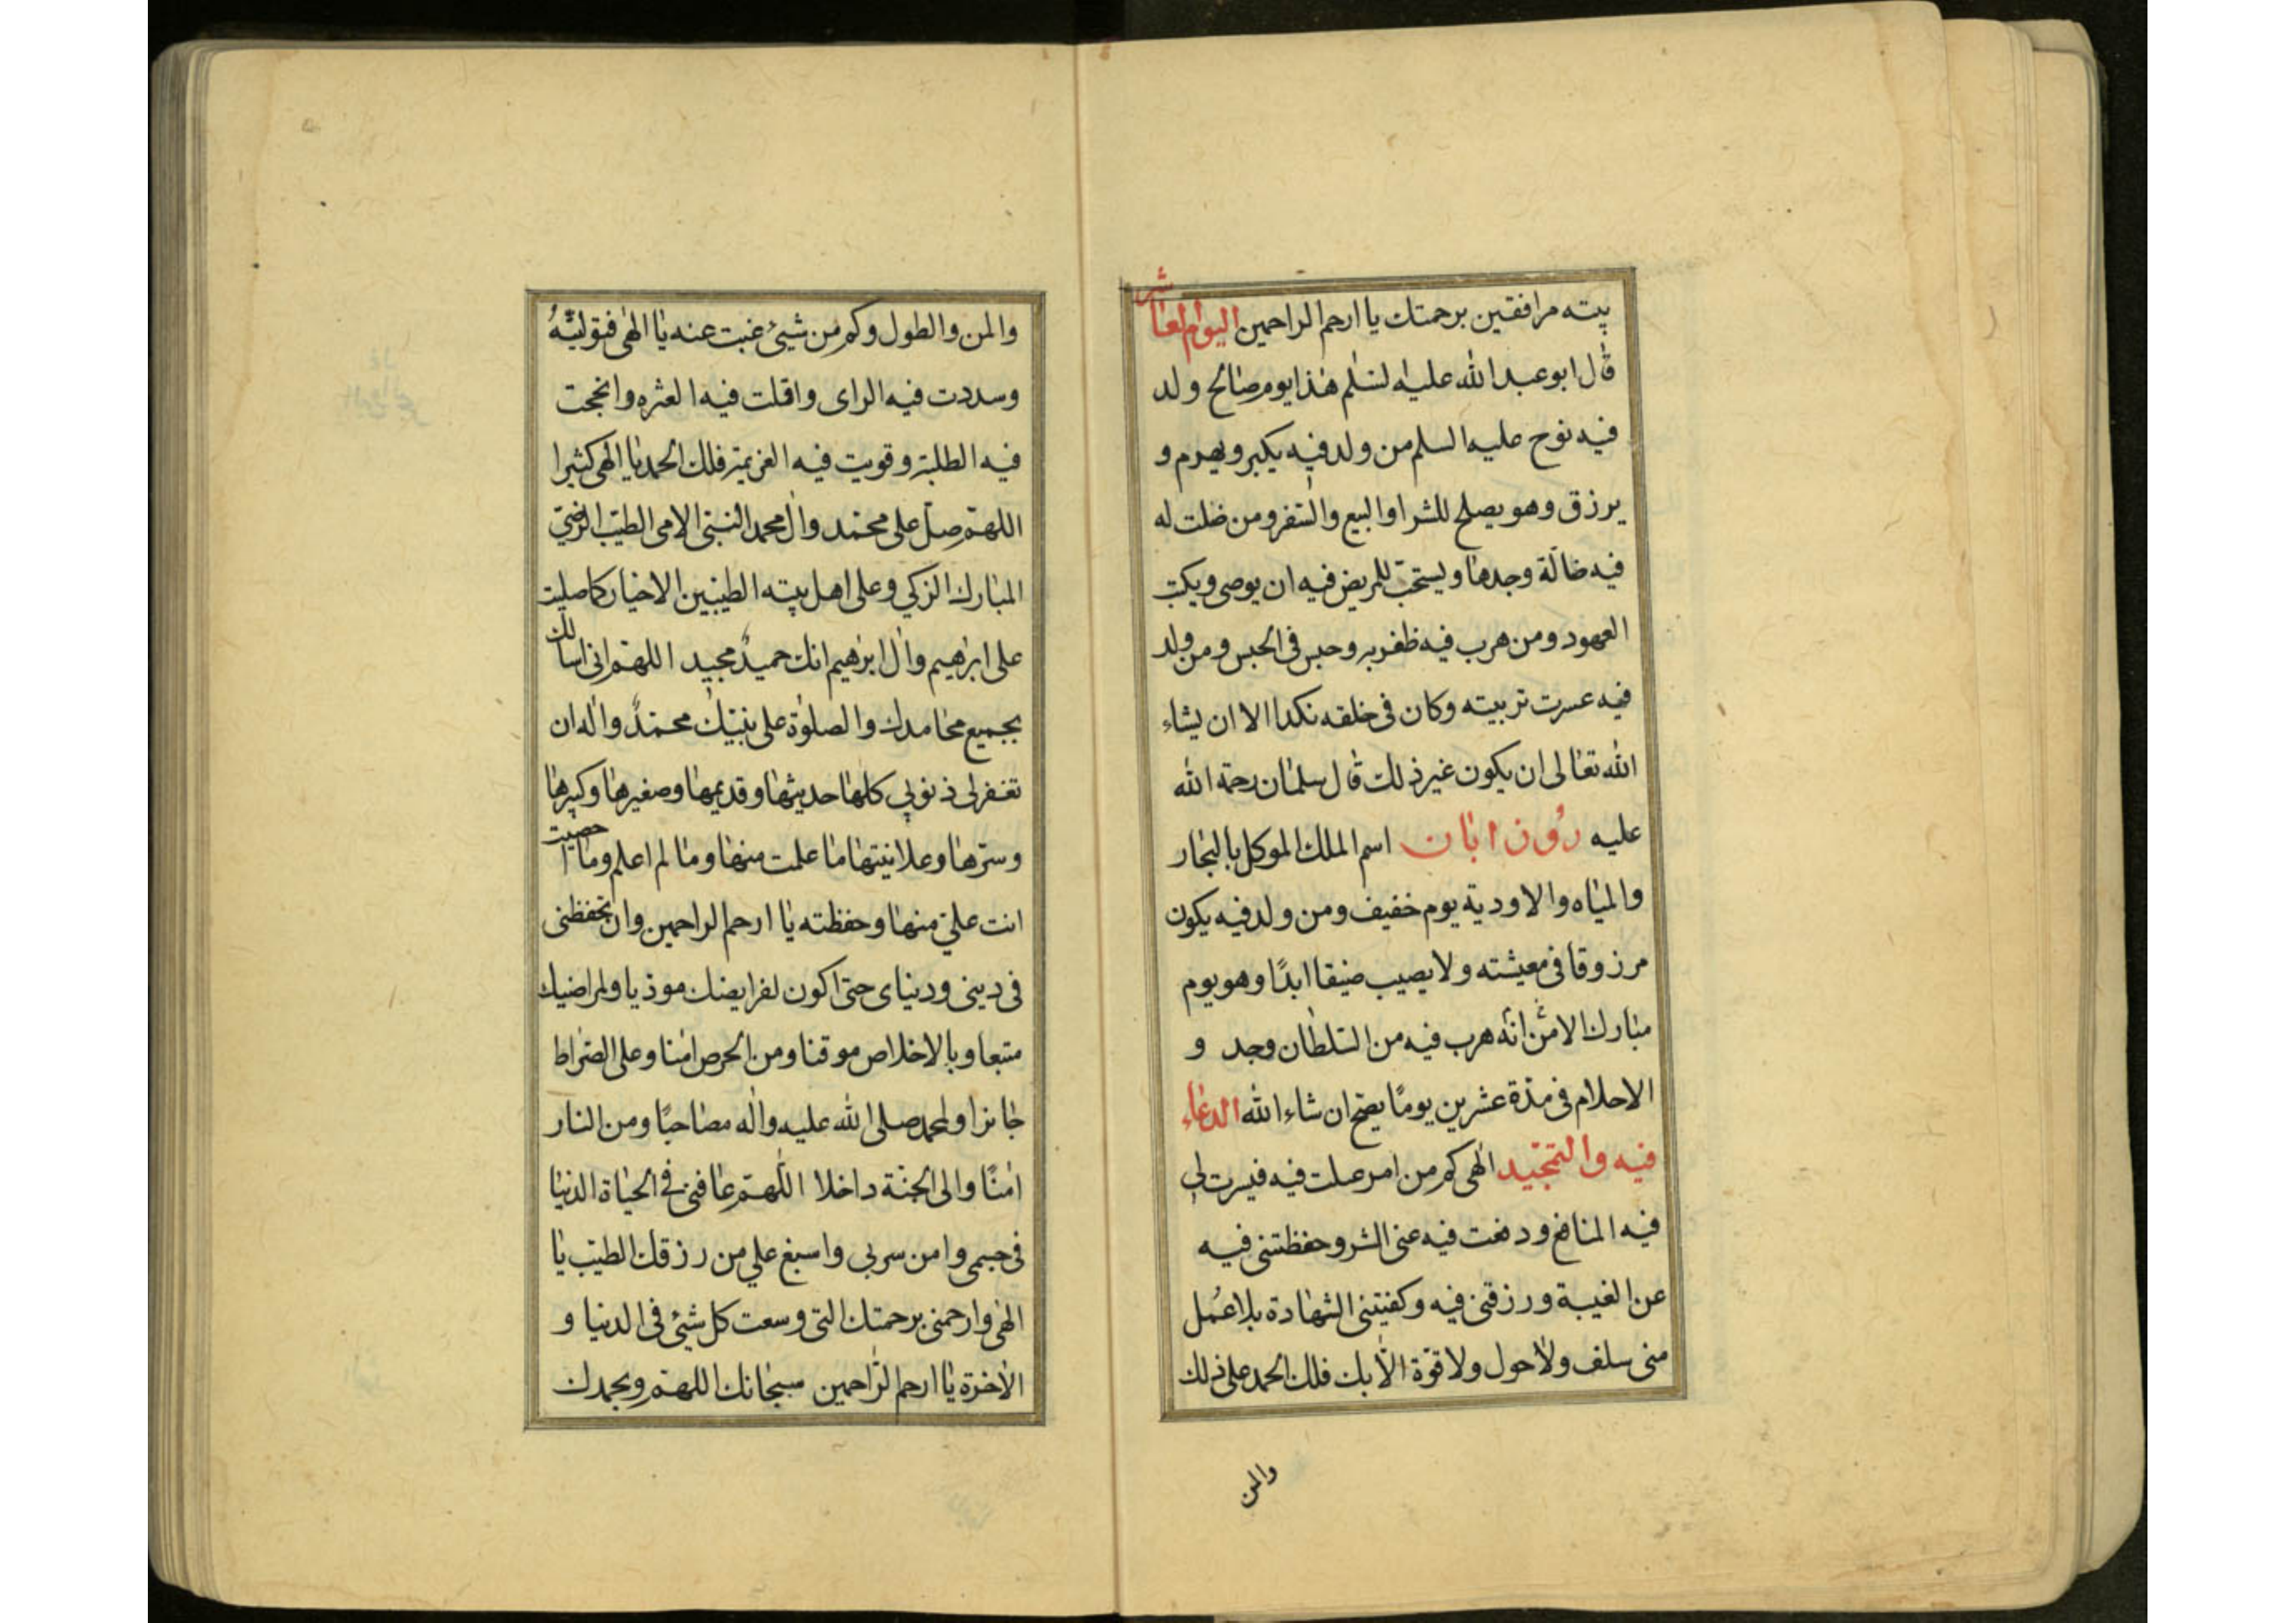 بيته مرافقين برحمتك يا ارحم الراحمين اليوم العاشر
قال ابو عبد الله عليه لسلم هذا يوم صالح ولد
فيه نوح عليه السلم من ولد فيه يكبر ويهرم و
يرزق وهو يصلح للشرا والبيع والسفر ومن ضلت له
فيه ضالة وجدها ويستحب للمريض فيه ان يوصى ويكتب
العهود ومن هرب فيه ظفر به وحبس فى الحبس ومن ولد
فيه عسرت تربيته وكان فى خلقه نكدا الا ان يشاء
الله تعالى ان يكون غير ذلك قال سلمان رحمة الله
عليه روز ابان اسم الملك الموكل بالبحار
والمياه والاودية يوم خفيف ومن ولد فيه يكون
مرزوقا فى معيشته ولا يصيب ضيقا ابدًا وهو يوم
مبارك الا من انه هرب فيه من السلطان وجد و
الاحلام فى مدة عشرين يومًا يصح ان شاء الله الدعاء
فيه والتمجيد الهى كم من امر عملت فيه فيسرت لى
فيه المنافع ودفعت فيه عنى الشر وحفظتنى فيه
عن الغيبة ورزقتنى فيه وكفيتنى الشهادة بلا عمل
منى سلف ولا حول ولا قوة الا بك فلك الحمد على ذلك
والمن
والمن والطول وكم من شيئ غبت عنه يا الهى فتوليته
وسددت فيه الراى واقلت فيه العثره وانجحت
فيه الطلبة وقويت فيه العزيمة فلك الحمد يا الهى كثيرا
اللهم صل على محمد وال محمد النبى الامى الطيب الرضي
المبارك الزكي وعلى اهل بيته الطيبين الاخيار كما صليت
على ابرهيم وال ابرهيم انك حميد مجيد اللهم انى اسالك
بجميع محامدك والصلوة على نبيك محمد واله ان
تغفر لى ذنوبي كلها حديثها وقديمها وصغيرها وكبيرها
وسرها وعلانيتها ما علمت منها وما لم اعلم وما احصيت
انت علي منها وحفظته يا ارحم الراحمين وان تحفظنى
فى دينى ودنياى حتى اكون لفرايضك موذيا ولمراضيك
متبعا وبالاخلاص موقنا ومن الحرص امنا وعلى الصراط
جايزا ولمحمد صلى الله عليه واله مصاحبًا ومن النار
امنًا والى الجنة داخلا اللهم عافنى فى الحياة الدنيا
فى جسمى وامن سربى واسبغ علي من رزقك الطيب يا
الهى وارحمنى برحمتك التى وسعت كل شئ فى الدنيا و
الاخرة يا ارحم الراحمين سبحانك اللهم وبحمدك